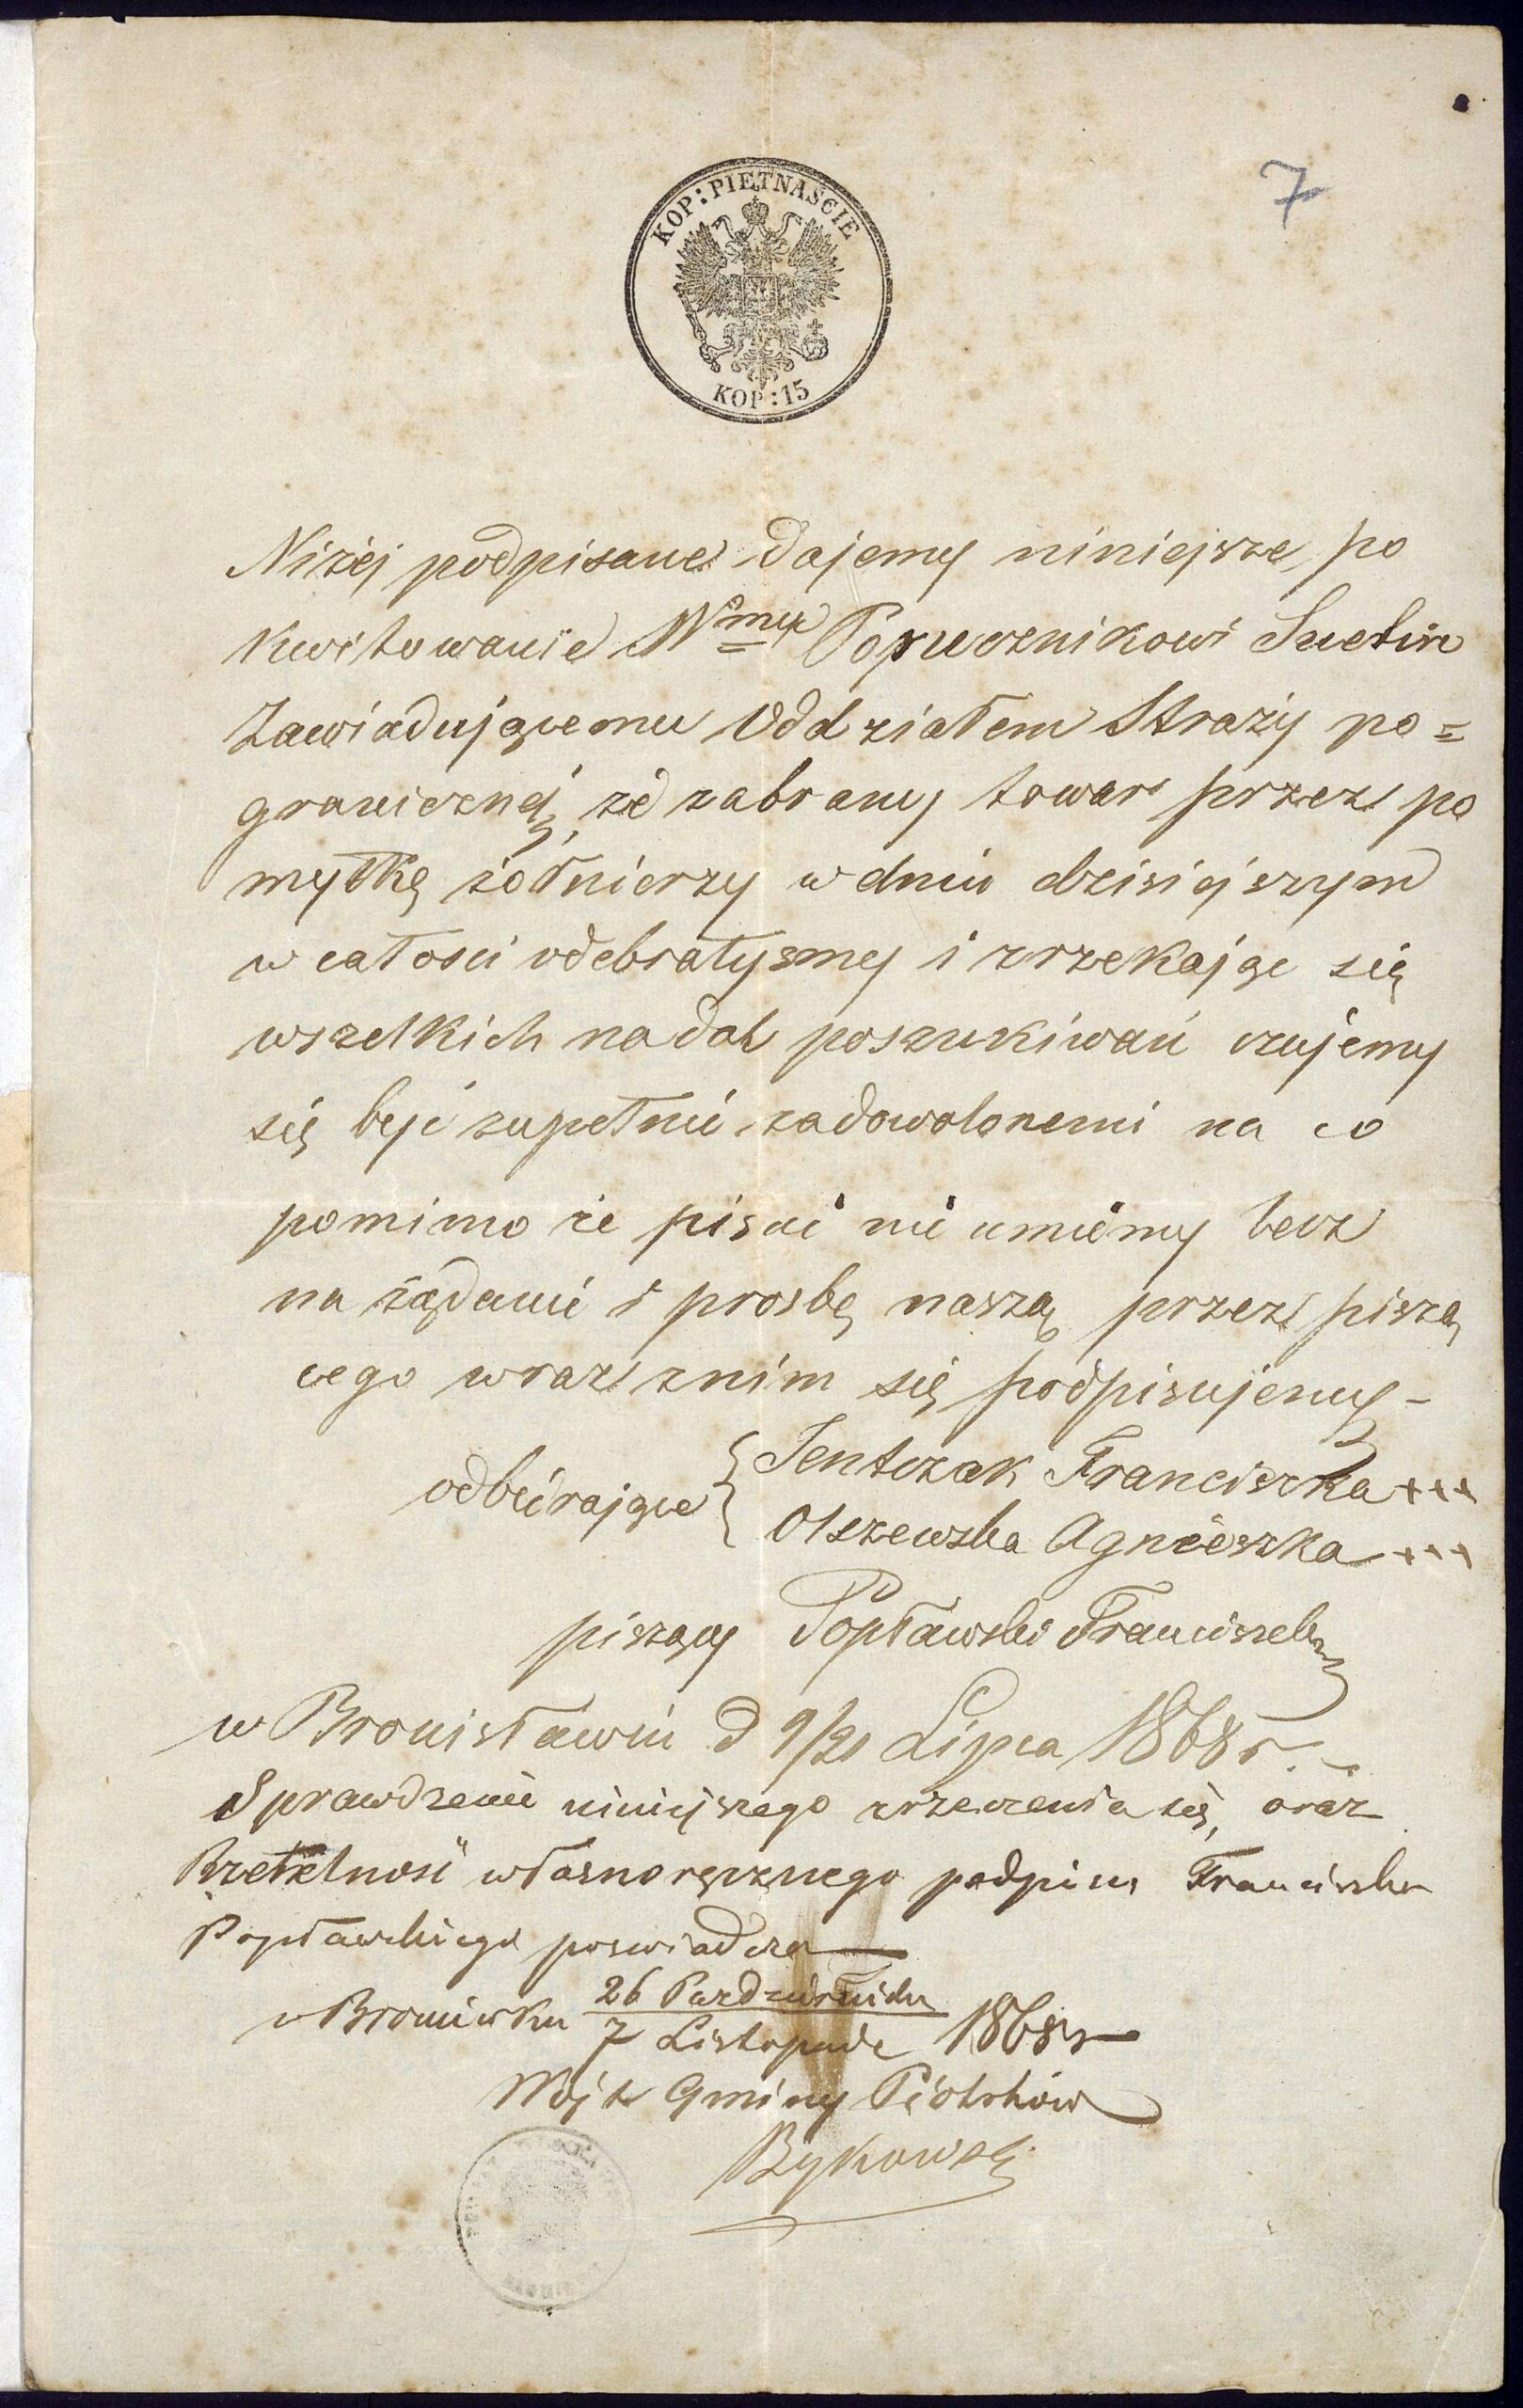 7
KOP: PIĘTNAŚCIE
KOP: 15
Niżej podpisane dajemy niniejsze po
kwitowanie Wmu Porucznikowi Suetin
Zawiadującemu Oddziałem Straży po=
granicznej, że zabrany towar przez po
myłkę żołnierzy w dniu dzisiejszym
w całości odebrałysmy i zrzekając się
wszelkich nadal poszukiwań czujemy
się być zupełnie zadowolonemi na co
pomimo że pisać nie umiemy lecz
na żądanie i prosbę naszą przez piszą
cego wraz znim się podpisujemy –
odbierające { Jentczak Franciszka +++
Olszewska Agnieszka +++
piszący Popławski Franciszek
w Bronisławiu d 9/21 Lipca 1868 r.
Sprawdzenie niniejszego zrzeczenia się, oraz
Rzetelność własnoręcznego podpisu Franciszka
Popławskiego poswiadcza
w Broniewku 26 Pazdziernika
7 Listopada 1868 r
Wójt Gminy Piotrków
Bykowski